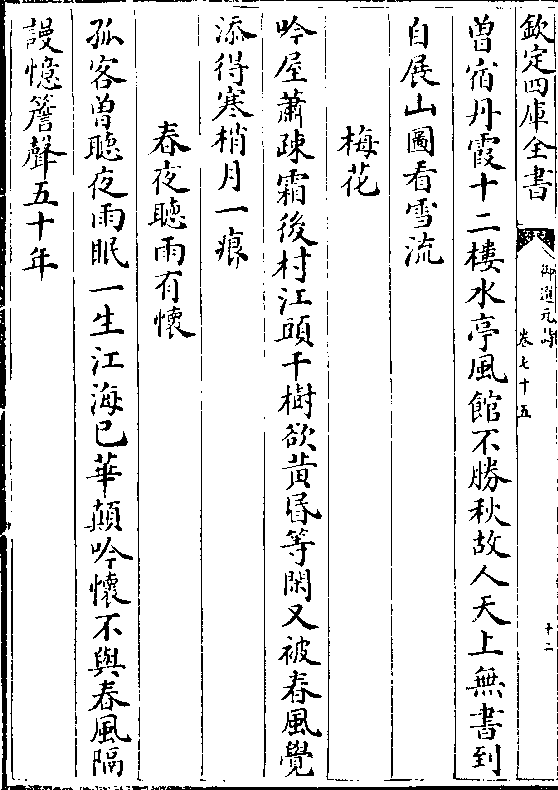 欽定四庫全書
御選元詩
卷七十五
十二
曽宿丹霞十二樓水亭風館不勝秋故人天上無書到
自展山圖看雪流
梅花
吟屋蕭疎霜後村江頭千樹欲黄昏等閒又被春風覺
添得寒梢月一痕
春夜聽雨有懷
孤客曽聽夜雨眠一生江海已華顛吟懷不與春風隔
謾憶簷聲五十年